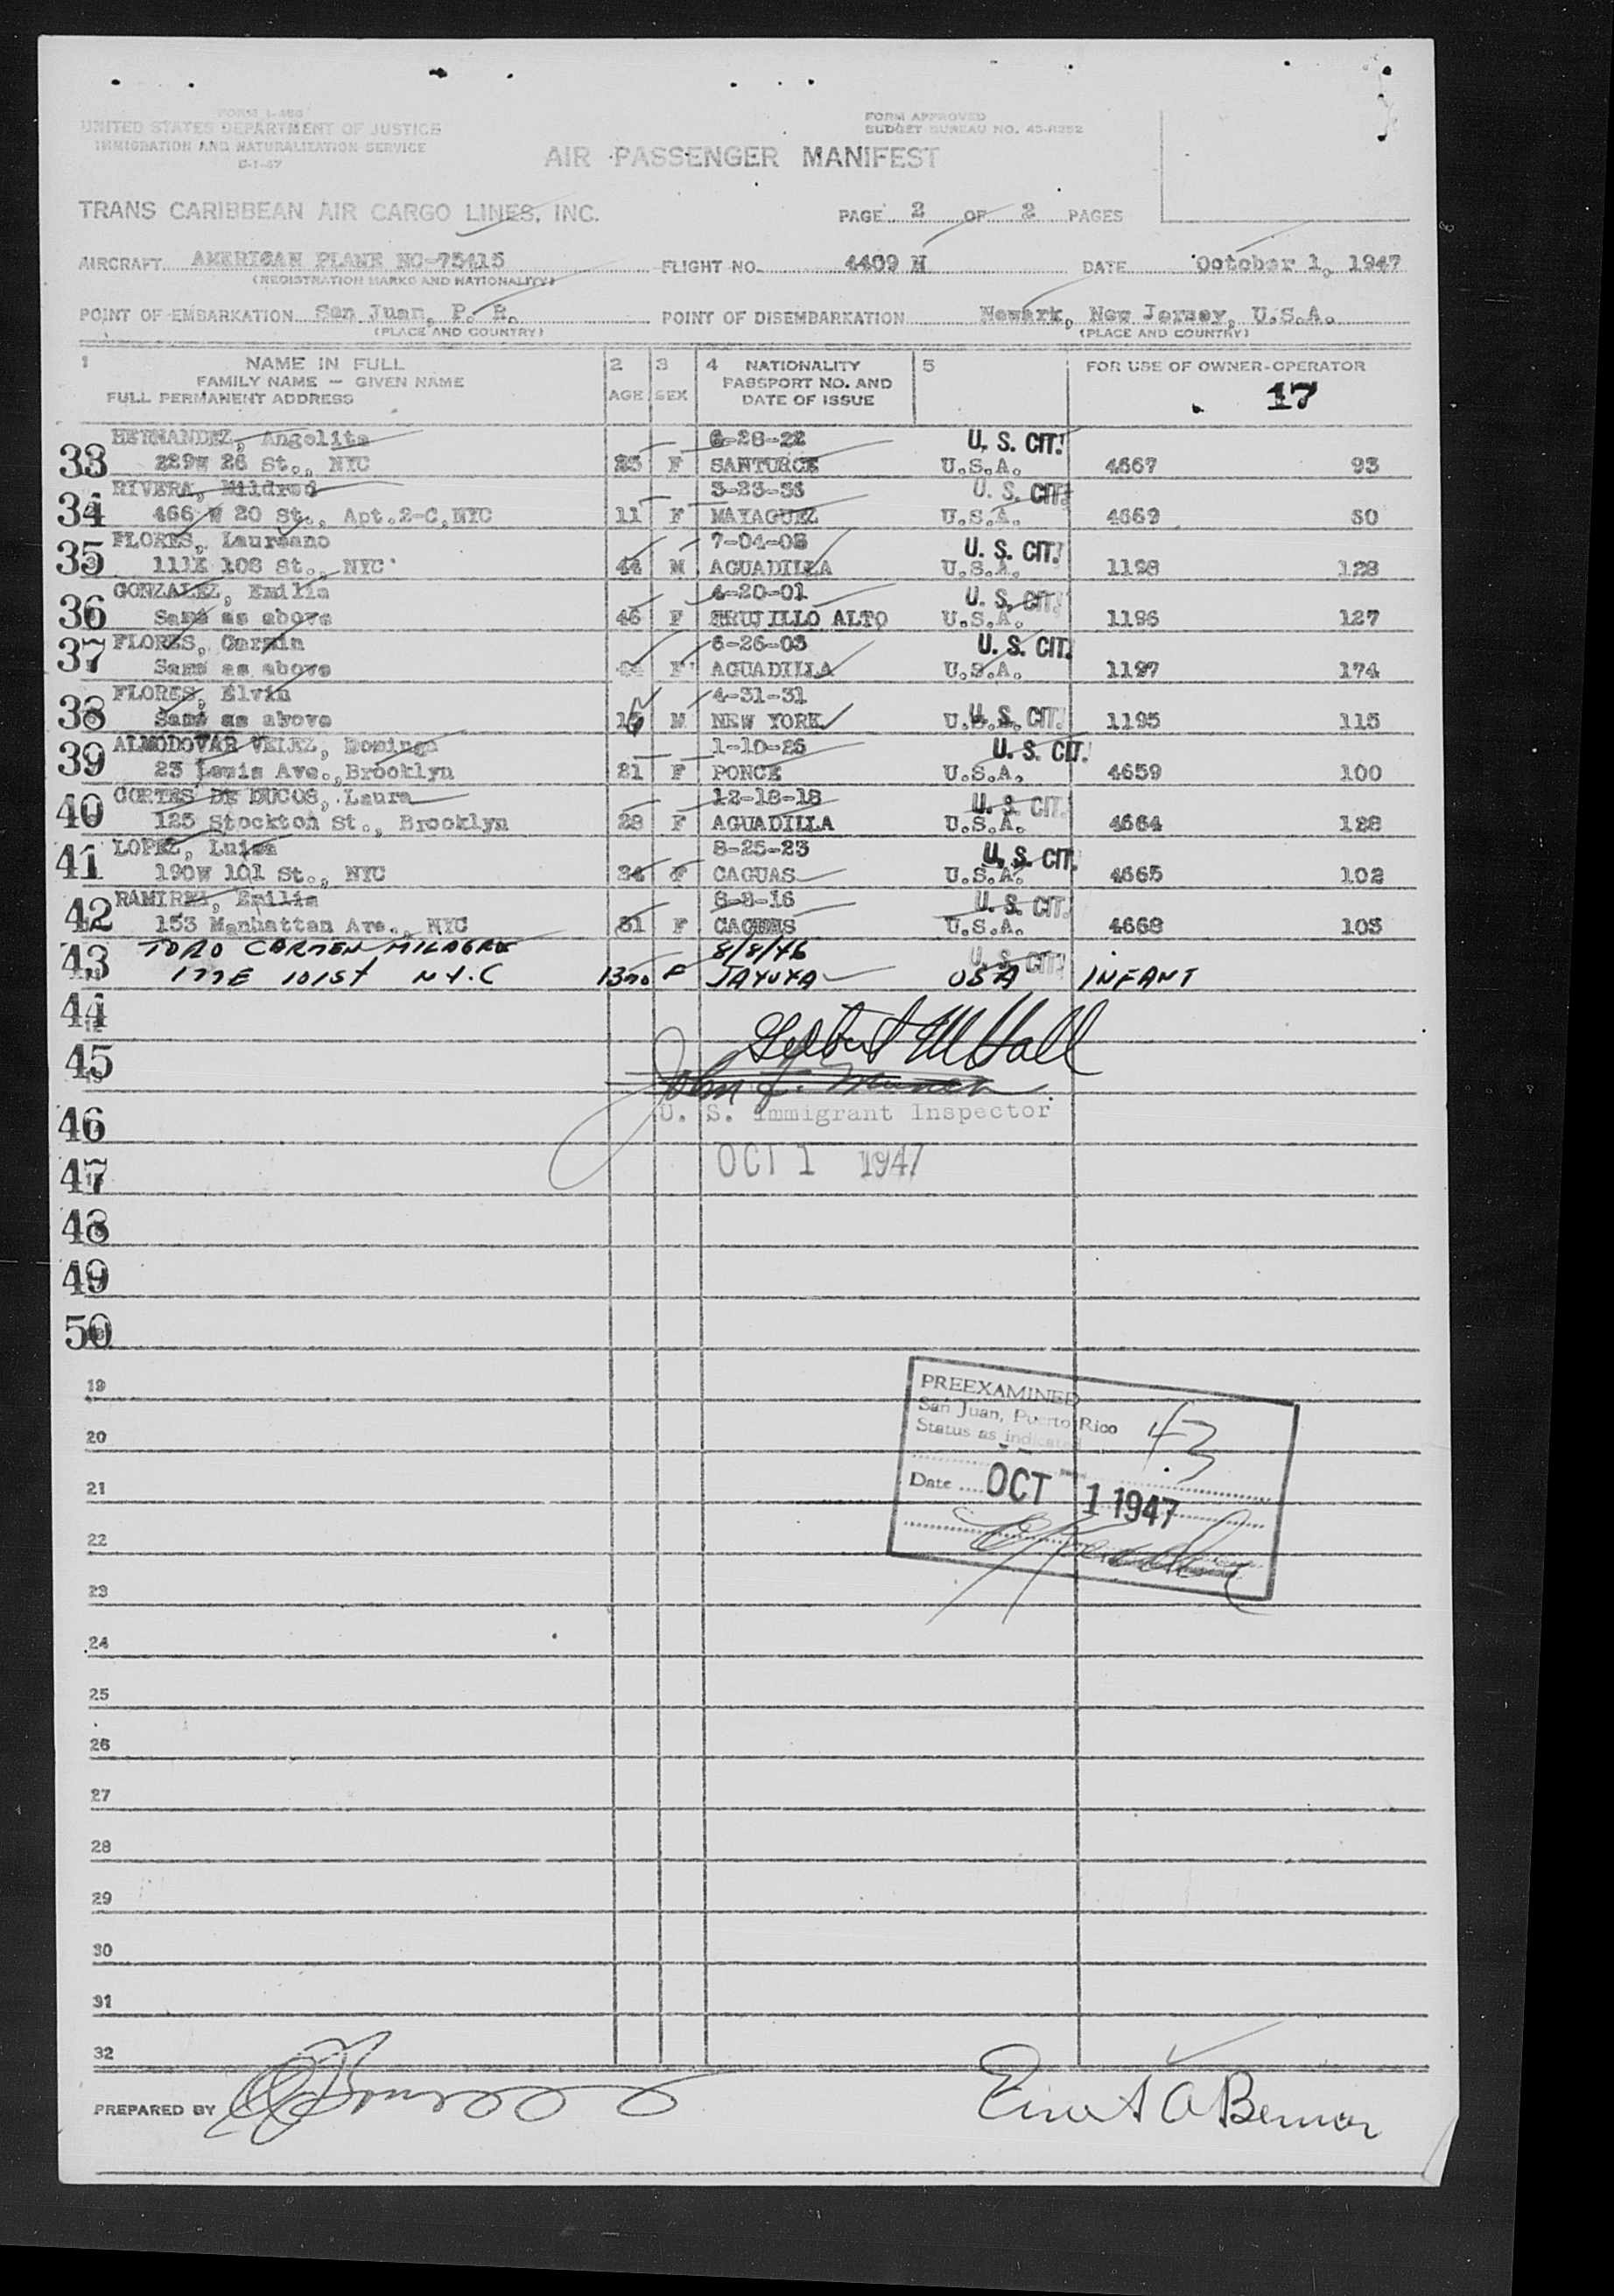 FORM I-466
UNITED STATES DEPARTMENT OF JUSTICE
IMMIGRATION AND NATURALIZATION SERVICE
FORM APPROVED
BUDGET BUREAU NO. 43-R252
AIR PASSENGER MANIFEST
TRANS CARIBBEAN AIR CARGO LINES, INC.
PAGE 2 OF 2 PAGES
AIRCRAFT AMERICAN PLANE NC-75415 FLIGHT NO. 4409 N DATE October 1, 1947
(REGISTRATION MARKS AND NATIONALITY)
POINT OF EMBARKATION San Juan, P. R. POINT OF DISEMBARKATION Newark, New Jersey, U.S.A.
(PLACE AND COUNTRY) (PLACE AND COUNTRY)
1 NAME IN FULL 2 3 4 NATIONALITY 5 FOR USE OF OWNER-OPERATOR
FAMILY NAME — GIVEN NAME PASSPORT NO. AND
FULL PERMANENT ADDRESS AGE SEX DATE OF ISSUE 17
HERNANDEZ, Angelita 6-28-22 U. S. CIT.
33 229W 26 St., NYC 25 F SANTURCE U.S.A. 4667 93
RIVERA, Mildred 3-23-36 U. S. CIT.
34 466 W 20 St., Apt.2-C, NYC 11 F MAYAGUEZ U.S.A. 4669 60
FLORES, Laureano 7-04-03 U. S. CIT.
35 111E 103 St., NYC 44 M AGUADILLA U.S.A. 1198 128
GONZALEZ, Emilia 4-20-01 U. S. CIT.
36 Same as above 46 F TRUJILLO ALTO U.S.A. 1196 127
FLORES, Carmin 6-26-03 U. S. CIT.
37 Same as above 44 F AGUADILLA U.S.A. 1197 174
FLORES, Elvin 4-31-31 U. S. CIT.
38 Same as above 16 M NEW YORK U.S.A. 1195 115
ALMODOVAR VELEZ, Dominga 1-10-26 U. S. CIT.
39 23 Lewis Ave., Brooklyn 21 F PONCE U.S.A. 4659 100
CORTES DE DUCOS, Laura 12-18-18 U. S. CIT.
40 125 Stockton St., Brooklyn 28 F AGUADILLA U.S.A. 4664 128
LOPEZ, Luisa 8-25-23 U. S. CIT.
41 190W 101 St., NYC 24 F CAGUAS U.S.A. 4665 102
RAMIREZ, Emilia 8-8-16 U. S. CIT.
42 153 Manhattan Ave., NYC 31 F CAGUAS U.S.A. 4668 103
TORO CARMEN MILAGRE 8/8/46 U. S. CIT.
43 177E 101st N.Y.C 13mo F JAYUYA USA INFANT
44
45
U. S. Immigrant Inspector
46
OCT 1 1947
47
48
49
50
PREEXAMINED
19
San Juan, Puerto Rico 43
Status as indicated
20
Date OCT 1 1947
21
22
23
24
25
26
27
28
29
30
31
32
PREPARED BY